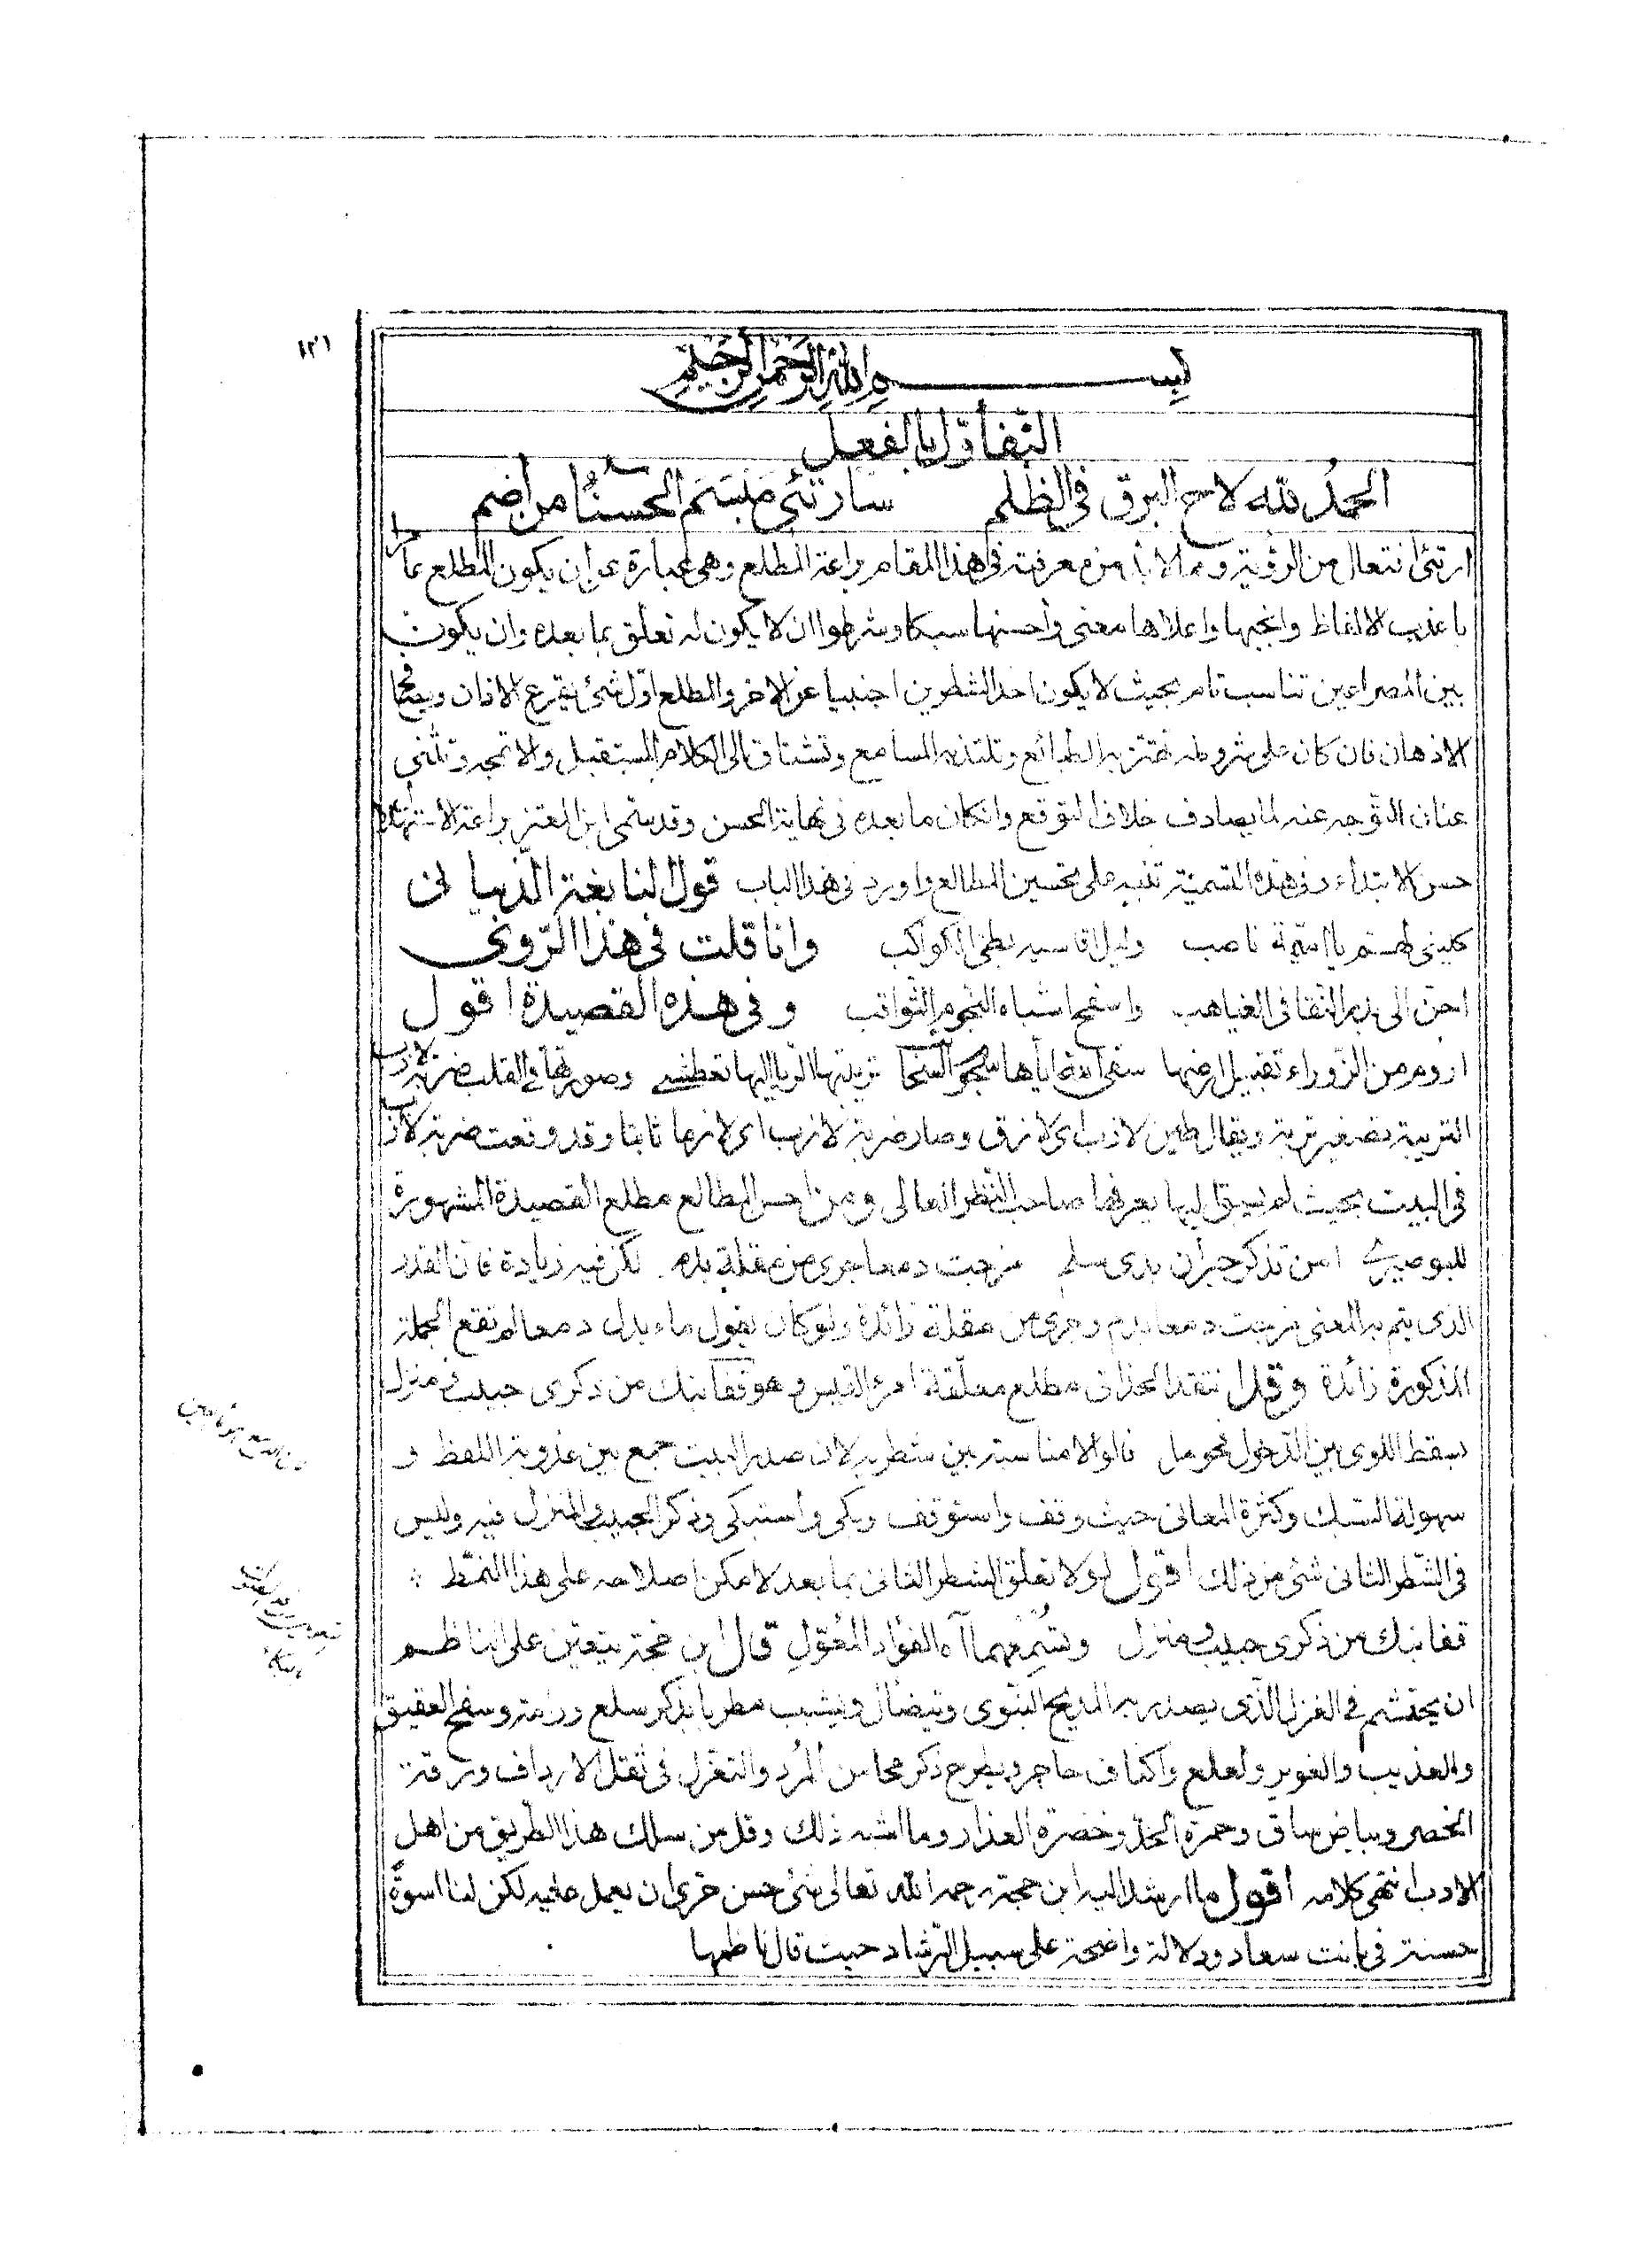 ١٢١
بسم الله الرحمن الرحيم
التفأول بالفعل
الحمد لله لاح البرق في الظلم سارتئي مبتسم الحسناء من أضم
ارتئى افتعال من الرؤية ومما لا بد من معرفته في هذا المقام براعة المطلع وهي عبارة عن ان يكون المطلع
باعذب الالفاظ وانجبها واعلاها معنى واحسنها سبكا وشرطوا ان لا يكون له تعلق بما بعده وان يكون
بين المصراعين تناسب تام بحيث لا يكون احد الشطرين اجنبيا عن الاخر والمطلع اول شئ يقرع الاذان ويصافح
الاذهان فان كان على شروطه تهتز به الطبائع وتلتذ به المسامع وتشتاق الى الكلام المستقبل والا تمجه وتثنى
عنان التوجه عنه لما يصادف خلاف التوقع وان كان ما بعده في نهاية الحسن وقد سمى ابن المعتز براعة الاستهلال
حسن الابتداء وفي هذه التسمية تنبيه على تحسين المطالع واورد في هذا الباب قول النابغة الذبياني
كليني لهم يا اميمة ناصب وليل اقاسيه بطئ الكواكب وانا قلت في هذا الروي
احن الى بدر النقا في الغياهب واسفح اشباه النجوم الثواقب وفي هذه القصيدة اقول
اروم من الزوراء تقبيل ارضها سقى الله اياها تربتها الريا اليها تعطشي وصورتها في القلب ضربة لازب
التربية تصغير تربة ويقال طين لازب اي لازق وصار ضربة لازب اي لازما ثابتا وقد وقعت ضربة لازب
في البيت بحيث لم يسبق اليها يعرفها صاحب النظر العالى ومن احسن المطالع مطلع القصيدة المشهورة
للبوصيري امن تذكر جيران بذى سلم مزجت دمعا جرى من مقلة بدم لكن فيه زيادة فان القدر
الذى يتم به المعنى مزجت دمعا بدم وجرى من مقلة زائدة ولو كان يقول ماء بدل دمعا لم تقع الجملة
المذكورة زائدة وقد انتقد الحذاق مطلع معلقة امرء القيس وهو قفا نبك من ذكرى حبيب ومنزل
بسقط اللوى بين الدخول فحومل قالوا لا مناسبة بين شطريه لان صدر البيت جمع بين عذوبة اللفظ و
سهولة السبك وكثرة المعانى حيث وقف واستوقف وبكى واستبكى وذكر الحبيب والمنزل فيه وليس
في الشطر الثانى شئ من ذلك اقول لولا تعلق الشطر الثانى بما بعد لامكن اصلاحه على هذا النمط
قفا نبك من ذكرى حبيب ومنزل آه الفؤاد المعول قال ابن حجة يتعين على الناظم
ان يحتشم في الغزل الذى يصدر به المديح النبوى ويتضائل ويشبب مطربا بذكر سلع ورامة وسفح العقيق
والعذيب والغوير ولعلع واكناف حاجر ويطرح ذكر محاسن المرد والتغزل في ثقل الارداف ورقة
الخصر وبياض ساق وحمرة الخد وخضرة العذار وما اشبه ذلك وقل من سلك هذا الطريق من اهل
الادب انتهى كلامه اقول ما ارشد اليه ابن حجة رحمه الله تعالى شئ حسن حرى ان يعمل عليه لكن لنا اسوة
حسنة في بانت سعاد ودلالة واضحة على سبيل الرشاد حيث قال ناظمها